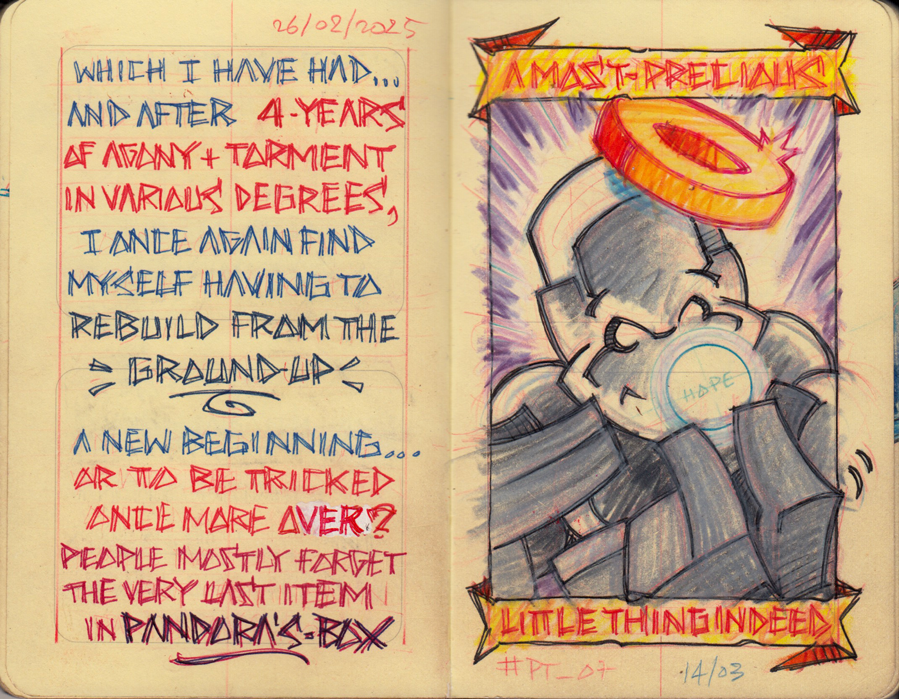 26/02/2025
WHICH I HAVE HAD...
AND AFTER 4-YEARS
OF AGONY + TORMENT
IN VARIOUS DEGREES,
I ONCE AGAIN FIND
MYSELF HAVING TO
REBUILD FROM THE
GROUND-UP
A NEW BEGINNING...
OR TO BE TRICKED
ONCE MORE OVER?
PEOPLE MOSTLY FORGET
THE VERY LAST ITEM
IN PANDORA'S-BOX
A MOST-PRECIOUS
HOPE
LITTLE THING INDEED
#PT_07
14/03